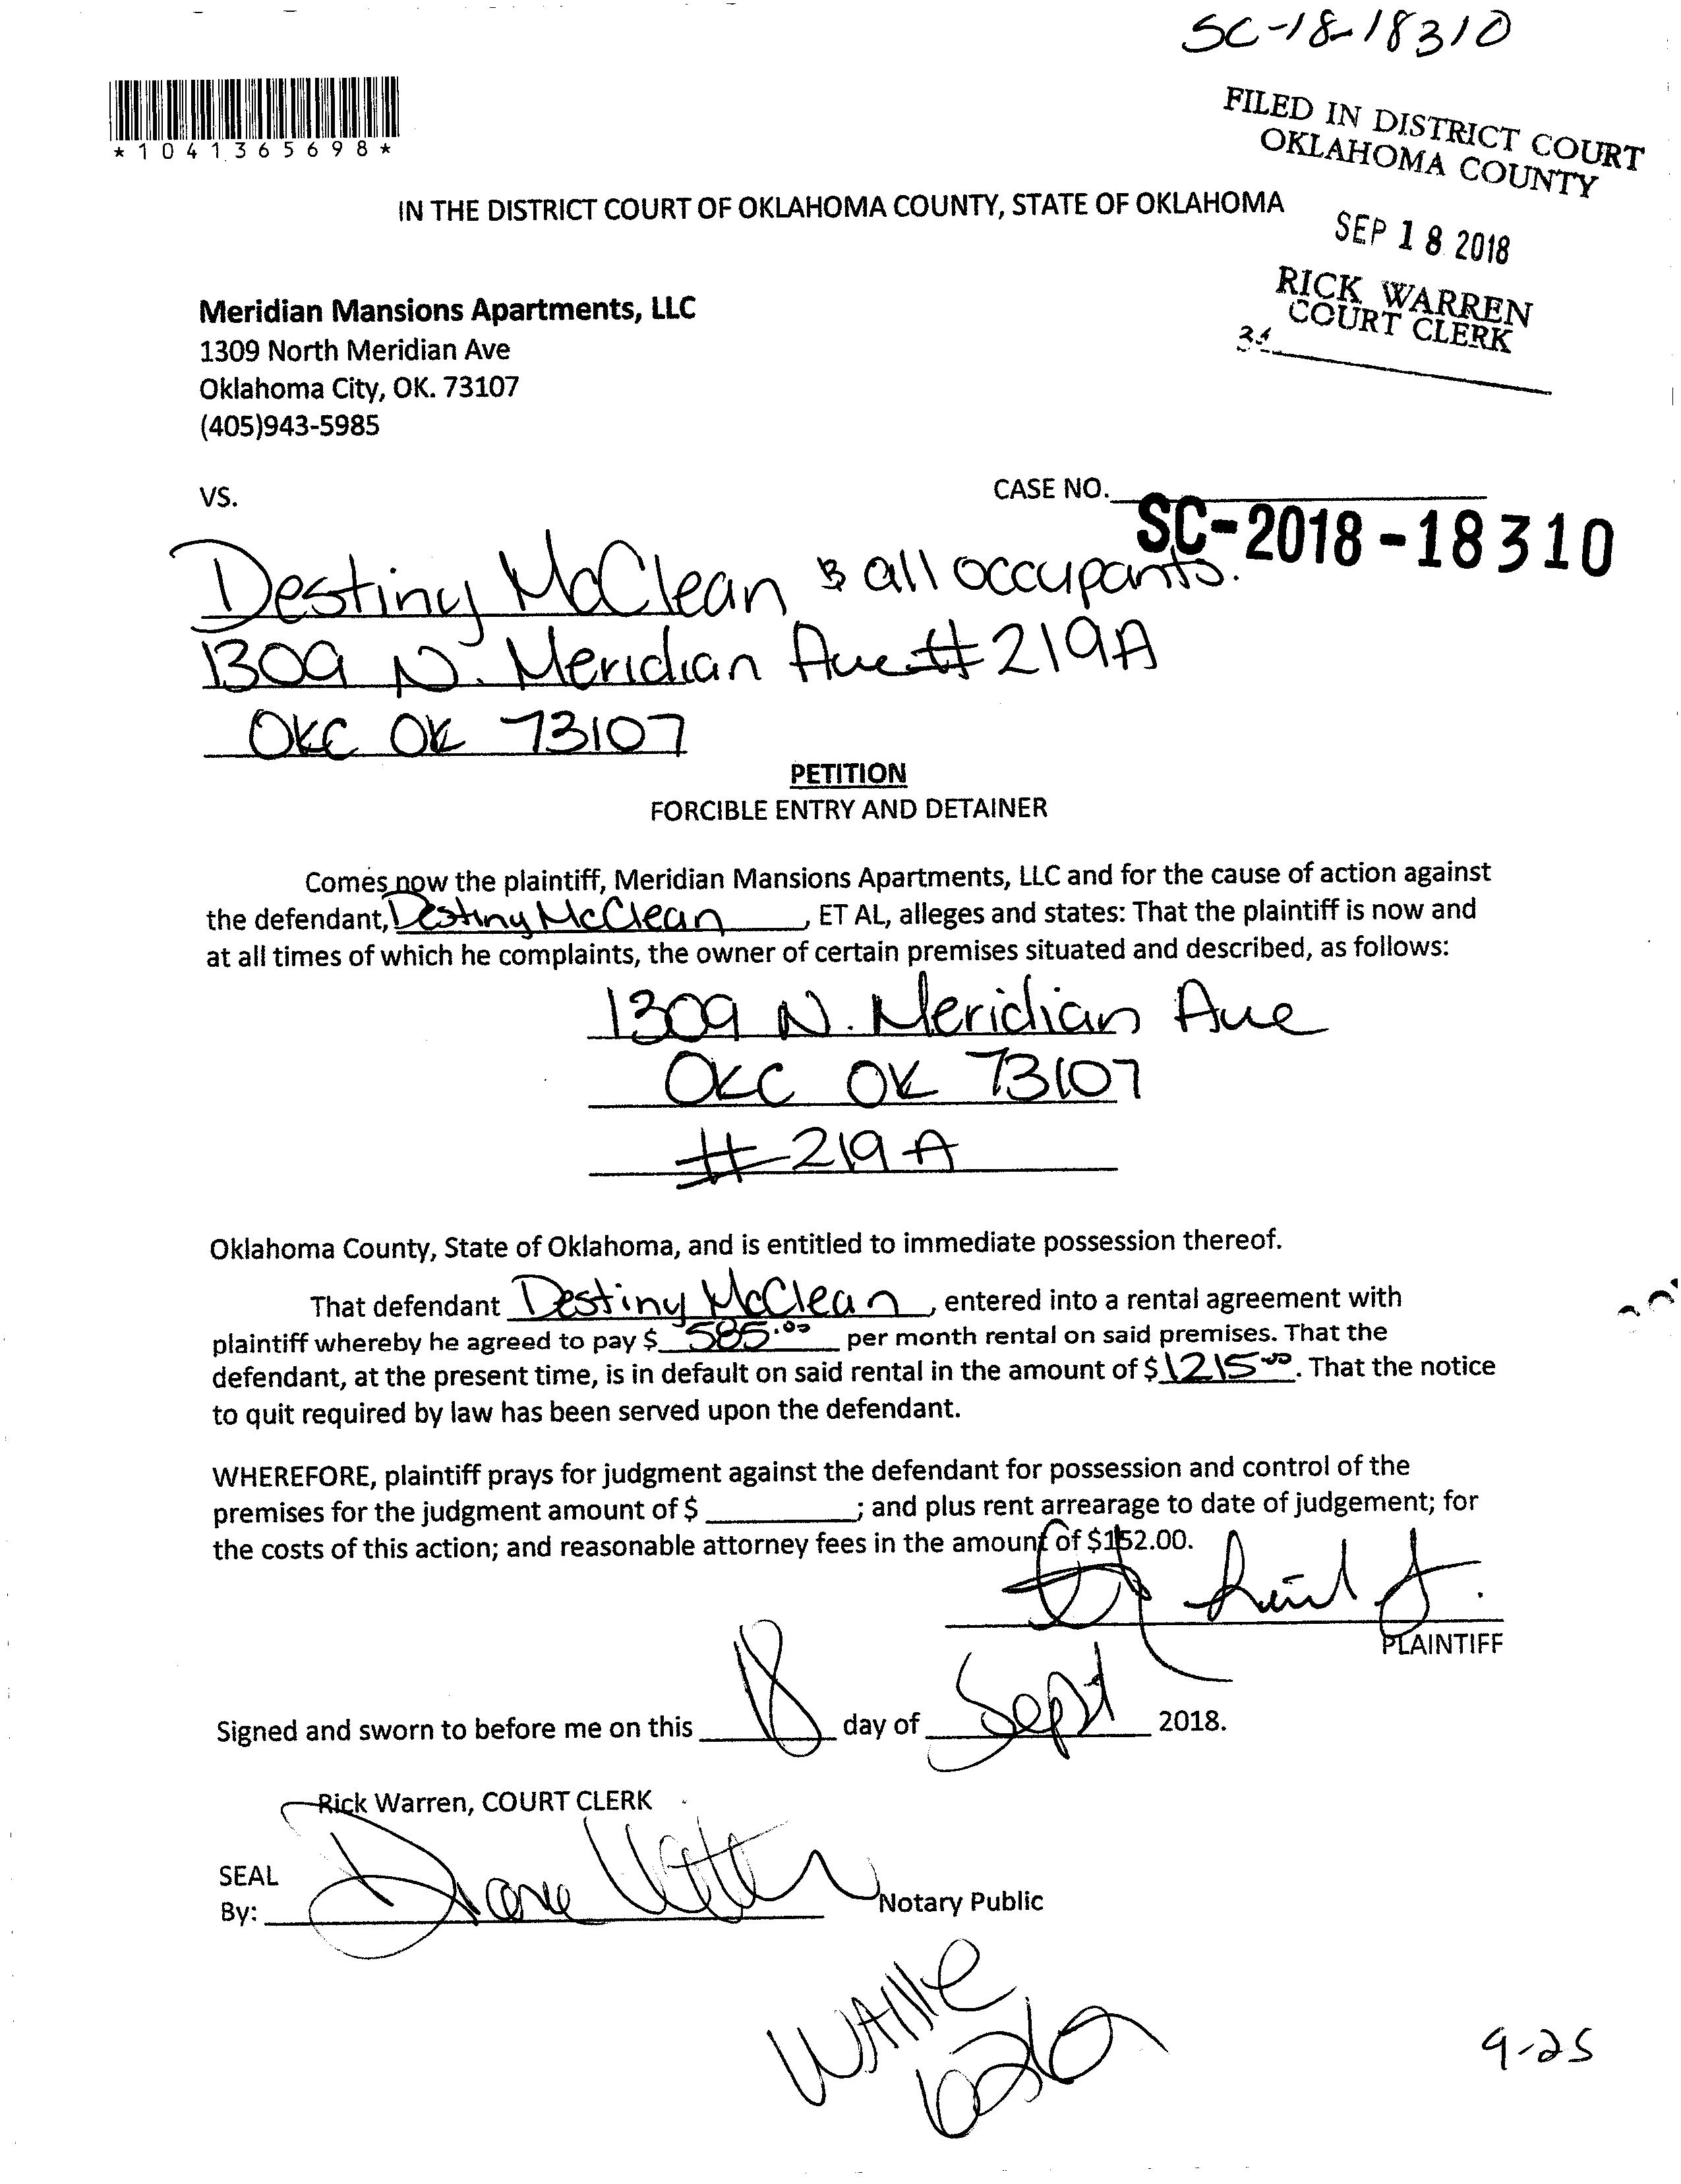 SC-18-18310
*1041365698*
FILED IN DISTRICT COURT
OKLAHOMA COUNTY
IN THE DISTRICT COURT OF OKLAHOMA COUNTY, STATE OF OKLAHOMA
SEP 18 2018
RICK WARREN
COURT CLERK
Meridian Mansions Apartments, LLC
1309 North Meridian Ave
Oklahoma City, OK. 73107
(405)943-5985
VS.
CASE NO.
SC-2018-18310
Destiny McClean & all occupants.
1309 N. Meridian Ave #219A
OKC OK 73107
PETITION
FORCIBLE ENTRY AND DETAINER
Comes now the plaintiff, Meridian Mansions Apartments, LLC and for the cause of action against
the defendant, Destiny McClean, ET AL, alleges and states: That the plaintiff is now and
at all times of which he complaints, the owner of certain premises situated and described, as follows:
1309 N. Meridian Ave
OKC OK 73107
#219A
Oklahoma County, State of Oklahoma, and is entitled to immediate possession thereof.
That defendant Destiny McClean, entered into a rental agreement with
plaintiff whereby he agreed to pay $ 585.00 per month rental on said premises. That the
defendant, at the present time, is in default on said rental in the amount of $1215.00. That the notice
to quit required by law has been served upon the defendant.
WHEREFORE, plaintiff prays for judgment against the defendant for possession and control of the
premises for the judgment amount of $ __________; and plus rent arrearage to date of judgement; for
the costs of this action; and reasonable attorney fees in the amount of $152.00.
PLAINTIFF
Signed and sworn to before me on this 18 day of Sept 2018.
Rick Warren, COURT CLERK
SEAL
By: Diane
Notary Public
9-25